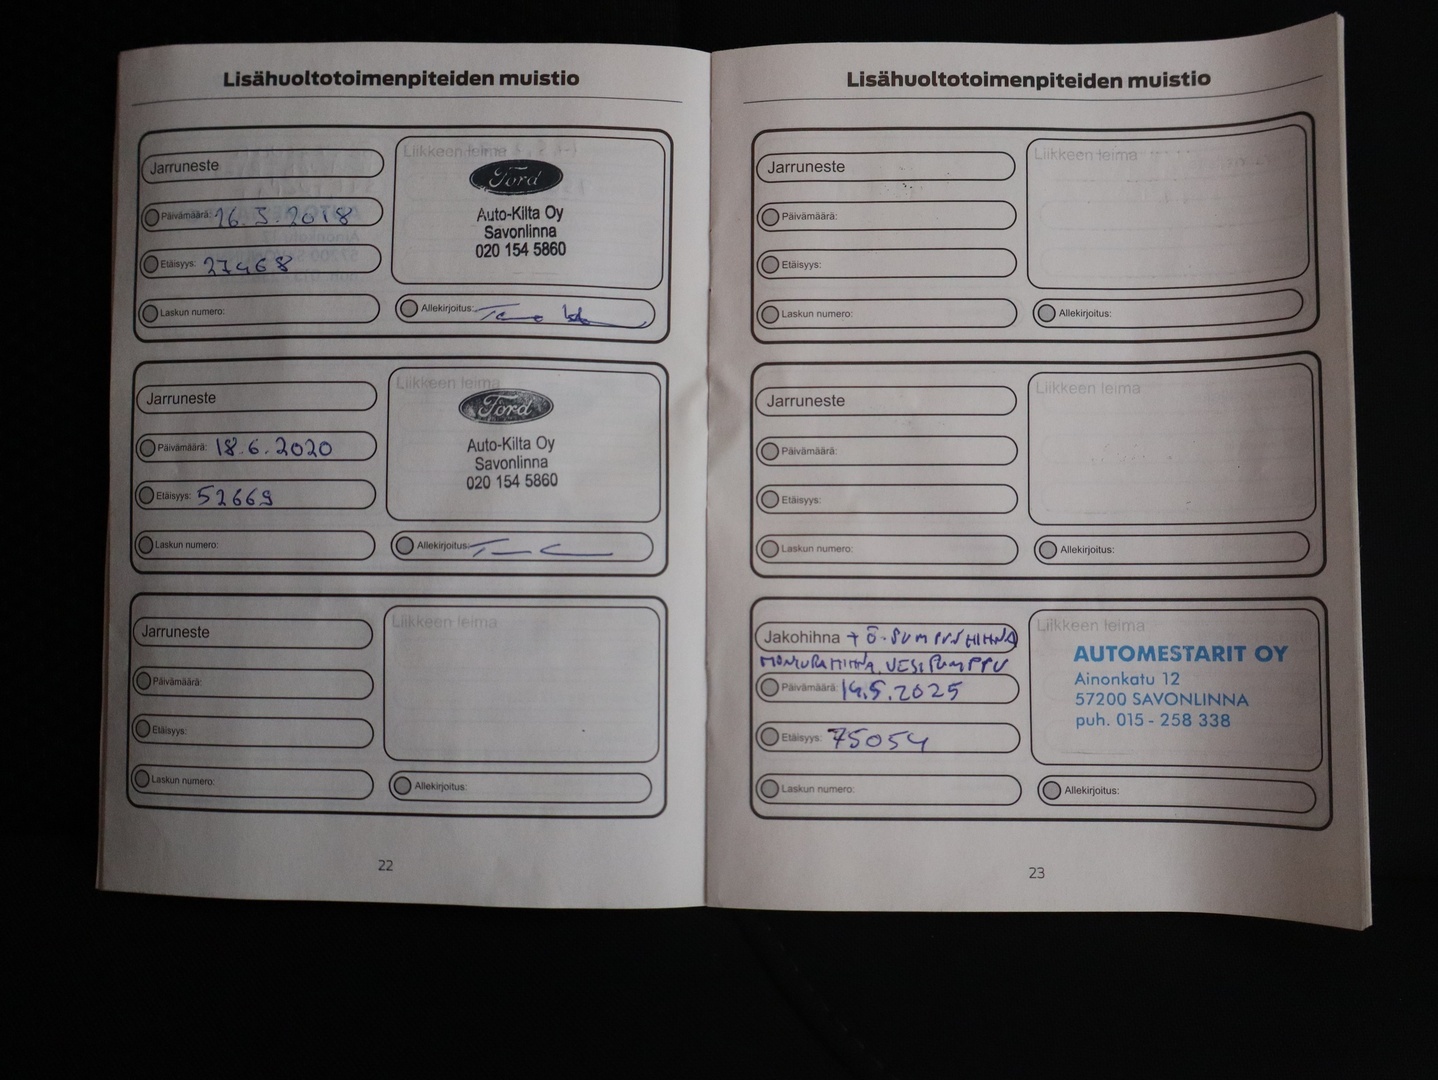 Lisähuoltotoimenpiteiden muistio
Jarruneste
Päivämäärä: 26.3.2018
Etäisyys: 27468
Laskun numero:
Liikkeen leima
Ford
Auto-Kilta Oy
Savonlinna
020 154 5860
Allekirjoitus:
Jarruneste
Päivämäärä: 18.6.2020
Etäisyys: 52669
Laskun numero:
Liikkeen leima
Ford
Auto-Kilta Oy
Savonlinna
020 154 5860
Allekirjoitus:
Jarruneste
Päivämäärä:
Etäisyys:
Laskun numero:
Liikkeen leima
Allekirjoitus:
22
Lisähuoltotoimenpiteiden muistio
Jarruneste
Päivämäärä:
Etäisyys:
Laskun numero:
Liikkeen leima
Allekirjoitus:
Jarruneste
Päivämäärä:
Etäisyys:
Laskun numero:
Liikkeen leima
Allekirjoitus:
Jakohihna + Ö-PUMPUN HIHNA
MONIURAHIHNA, VESIPUMPPU
Päivämäärä: 14.5.2025
Etäisyys: 75054
Laskun numero:
Liikkeen leima
AUTOMESTARIT OY
Ainonkatu 12
57200 SAVONLINNA
puh. 015 - 258 338
Allekirjoitus:
23